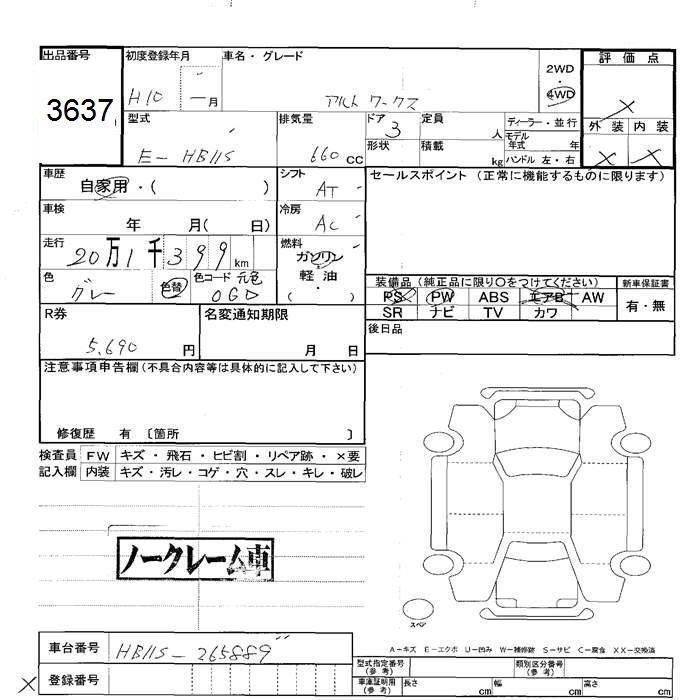 出品番号
3637
初度登録年月
H10 年 － 月
車名・グレード
アルト ワークス
2WD
・
4WD
評価点
×
外装 内装
× ×
型式
E－HB11S
排気量
660 CC
ドア
3
定員
人
ディーラー・並行
モデル
年式 年
形状
積載
kg
ハンドル 左・右
車歴
自家用・( )
シフト
AT
セールスポイント (正常に機能するものに限ります)
車検
年 月( 日)
冷房
AC
走行
20万1千399km
燃料
ガソリン
・
軽油
( ・ )
色
グレー
色替
色コード 元色
0GD
装備品 (純正品に限り○をつけてください)
新車保証書
PS PW ABS エアB AW
SR ナビ TV カワ
有・無
R券
5,690 円
名変通知期限
月 日
後日品
注意事項申告欄 (不具合内容等は具体的に記入して下さい)
修復歴 有 〔箇所 〕
検査員
記入欄
FW キズ・飛石・ヒビ割・リペア跡・×要
内装 キズ・汚レ・コゲ・穴・スレ・キレ・破レ
ノークレーム車
スペア
A－キズ E－エクボ U－凹み W－補修跡 S－サビ C－腐食 XX－交換済
車台番号
HB11S－265889
×
登録番号
型式指定番号
(参考)
類別区分番号
(参考)
車庫証明用
(参考)
長さ cm 幅 cm 高さ cm